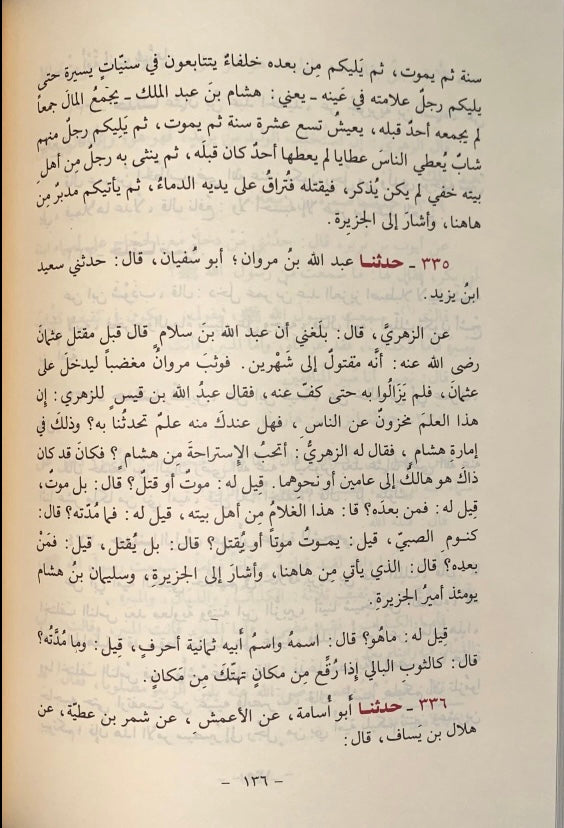 سنة ثم يموت، ثم يَليكم مِن بعده خلفاءٌ يتتابعون في سنيّاتٍ يسيرة حتى
يليكم رجلٌ علامته في عَينه ـ يعني: هشام بنَ عبد الملك ـ يجمَعُ المالَ جمعاً
لم يجمعه أحدٌ قبله، يعيشُ تسع عشرة سنة ثم يموت، ثم يَلِيكم رجلٌ منهم
شابٌ يُعطي الناسَ عطايا لم يعطها أحدٌ كان قبلَه، ثم ينثى به رجلٌ مِن أهلِ
بيته خفي لم يكن يُذكر، فيقتله فتُراقُ على يديه الدماءُ، ثم يأتيكم مدبرٌ مِن
هاهنا، وأشارَ إلى الجزيرة.
٣٣٥ ـ حدثنـا عبد الله بنُ مروان؛ أبو سُفيان، قال: حدثني سعيد
ابنُ يزيد.
عن الزهريِّ، قال: بلغني أن عبد الله بنَ سلامٍ قال قبل مقتل عثمانَ
رضى الله عنه: أنَّه مقتولٌ إلى شَهْرين. فوثبَ مروانُ مغضباً ليدخلَ على
عثمانَ، فلم يَزَالُوا به حتى كفّ عنه، فقال عبدُ الله بن قيسٍ للزهري: إن
هذا العلمَ مخزونٌ عن الناسِ، فهل عندكَ منه علمٌ تحدثُنا به؟ وذلكَ في
إمارة هشام، فقال له الزهريُّ: أتحبُ الإستراحةَ مِن هشامٍ؟ فكانَ قد كان
ذاكَ هو هالكٌ إلى عامين أو نحوِهما. قيل له: موتٌ أو قتلٌ؟ قال: بل موتٌ،
قيل له: فمن بعدَه؟ قا: هذا الغلامُ مِن أهل بيته، قيل له: فما مُدّته؟ قال:
كنـوم الصبيّ، قيل: يمـوتُ موتاً أو يُقتل؟ قال: بل يُقتل، قيل: فمَنْ
بعدِه؟ قال: الذي يأتي مِن هاهنا، وأشارَ إلى الجزيرةِ، وسليمان بنُ هشام
يومئذ أميرُ الجزيرة.
قيل له: ماهُو؟ قال: اسمهُ واسمُ أبيه ثمانية أحرفٍ، قيل: وما مُدَّتُه؟
قال: كالثوبِ البالي إذا رُقِّع مِن مكانٍ تهتّكَ مِن مَكانٍ.
٣٣٦ ـ حدثنـا أبو أسامة، عن الأعمشِ، عن شمر بن عطيّة، عن
هلال بن يَساف، قال:
ـ ١٣٦ ـ